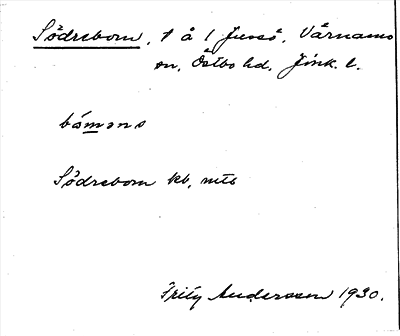 Södreborn, 1 å 1 Jussö, Värnamo
sn, Östbo hd, Jönk. l.
båmǝns
Södreborn kb, mtb
Fritz Andersson 1930.